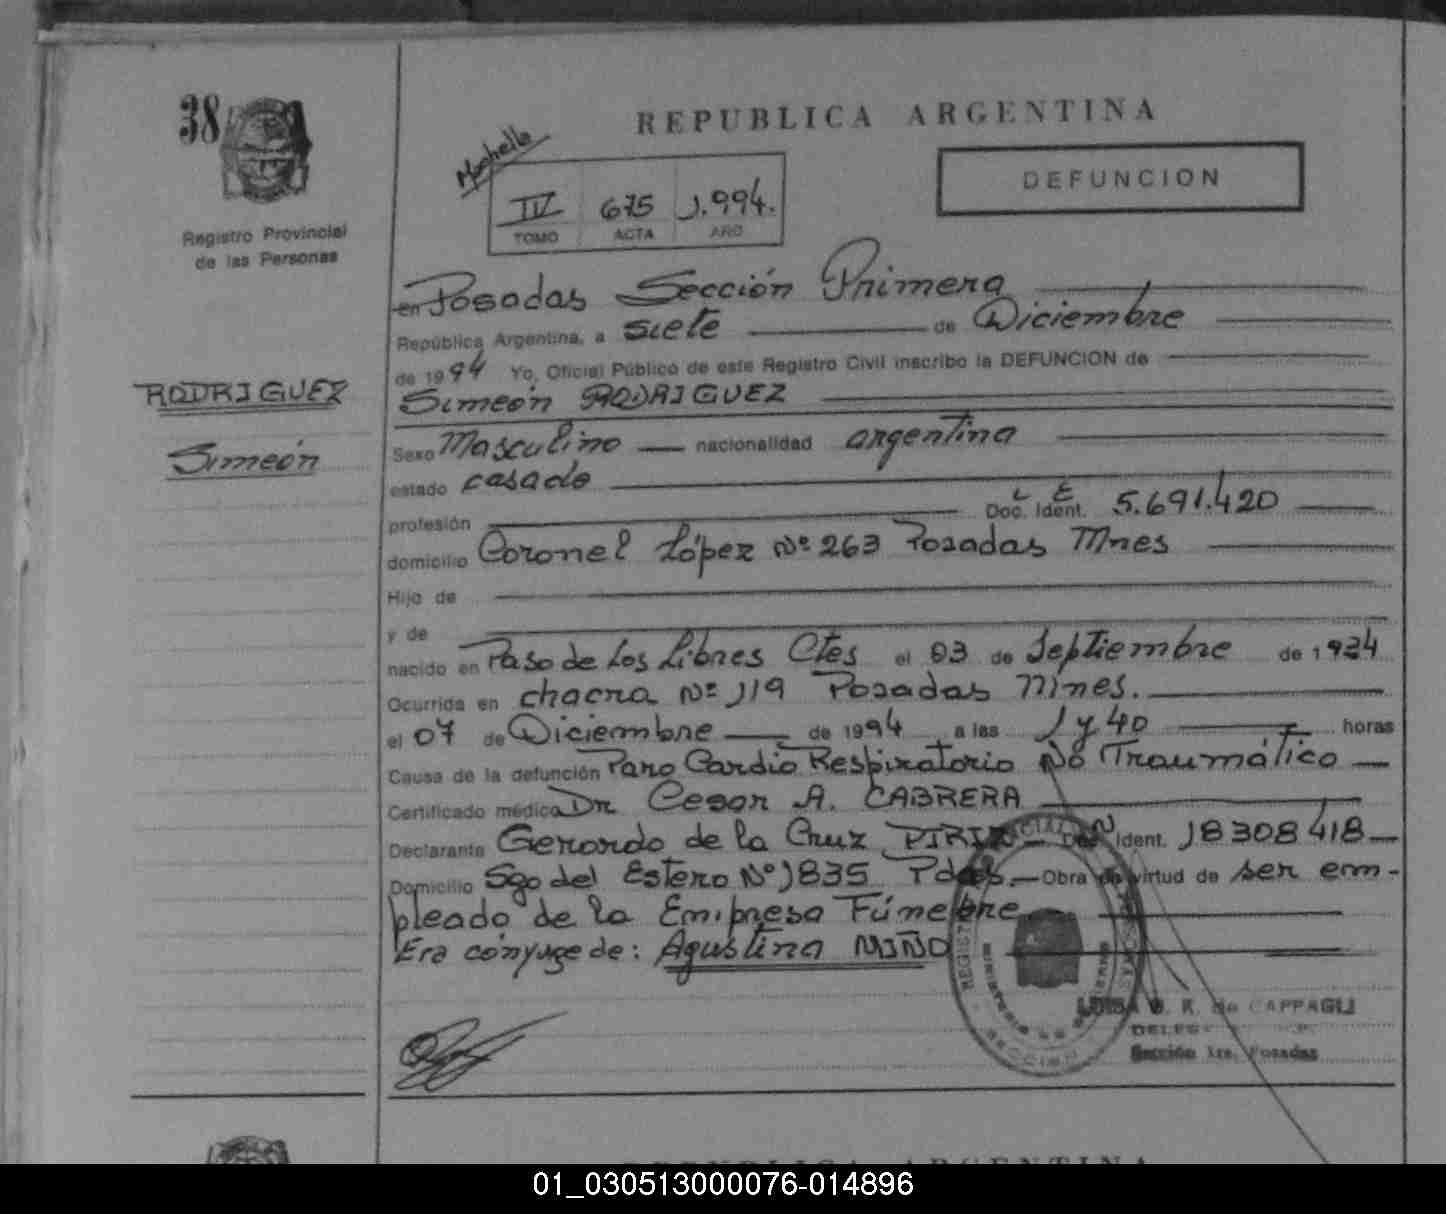 38
Registro Provincial
de las Personas
RODRIGUEZ
Simeón
REPUBLICA ARGENTINA
DEFUNCION
IV 675 1.994.
TOMO ACTA AÑO
en Posadas Sección Primera
República Argentina, a siete de Diciembre
de 1994 Yo, Oficial Público de este Registro Civil inscribo la DEFUNCION de
Simeón RODRIGUEZ
Sexo Masculino nacionalidad argentina
estado casado
L E
profesión Doc. Ident. 5.691.420
domicilio Coronel López Nº 263 Posadas Mnes
Hijo de
y de
nacido en Paso de Los Libres Ctes el 03 de Septiembre de 1934
Ocurrida en chacra Nº 119 Posadas Mnes.
el 07 de Diciembre de 1994 a las 1 y 40 horas
Causa de la defunción Paro Cardio Respiratorio No Traumático
Certificado médico Dr. Cesar A. CABRERA
Declarante Gerardo de la Cruz Ident. 18308418
Domicilio Sgo del Estero Nº 1835 Pdas. Obra en virtud de ser em-
pleado de la Empresa Fúnebre
Era cónyuge de: Agustina MIÑO
LUISA R. de CAPPAGLI
Sección 1ra. Posadas
REPUBLICA ARGENTINA
01_030513000076-014896